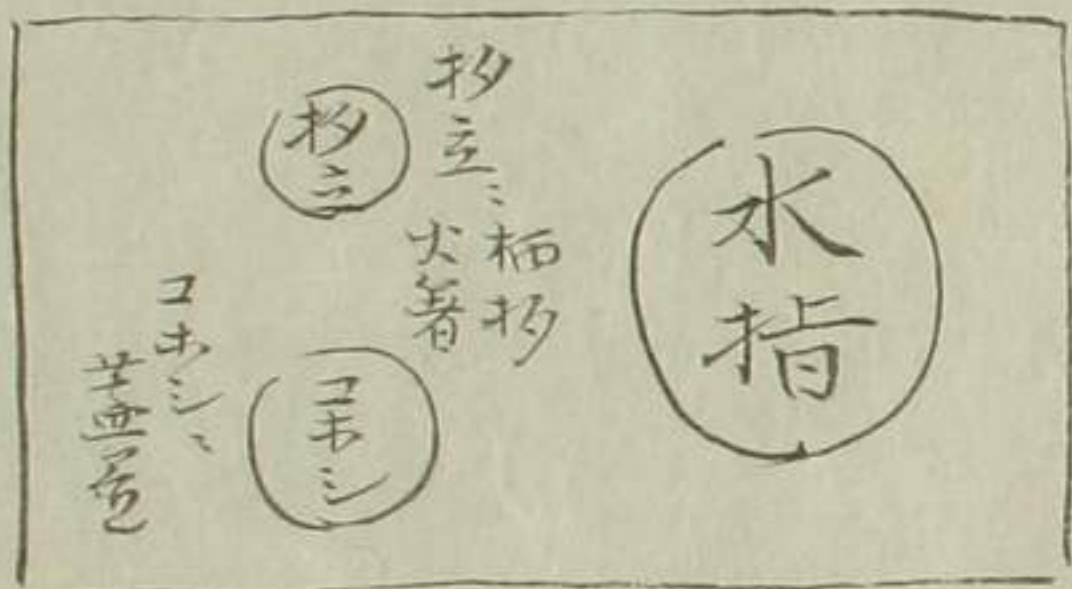 水指
杓立ニ柄杓
火箸
杓立
コホシ
コホシニ
蓋置